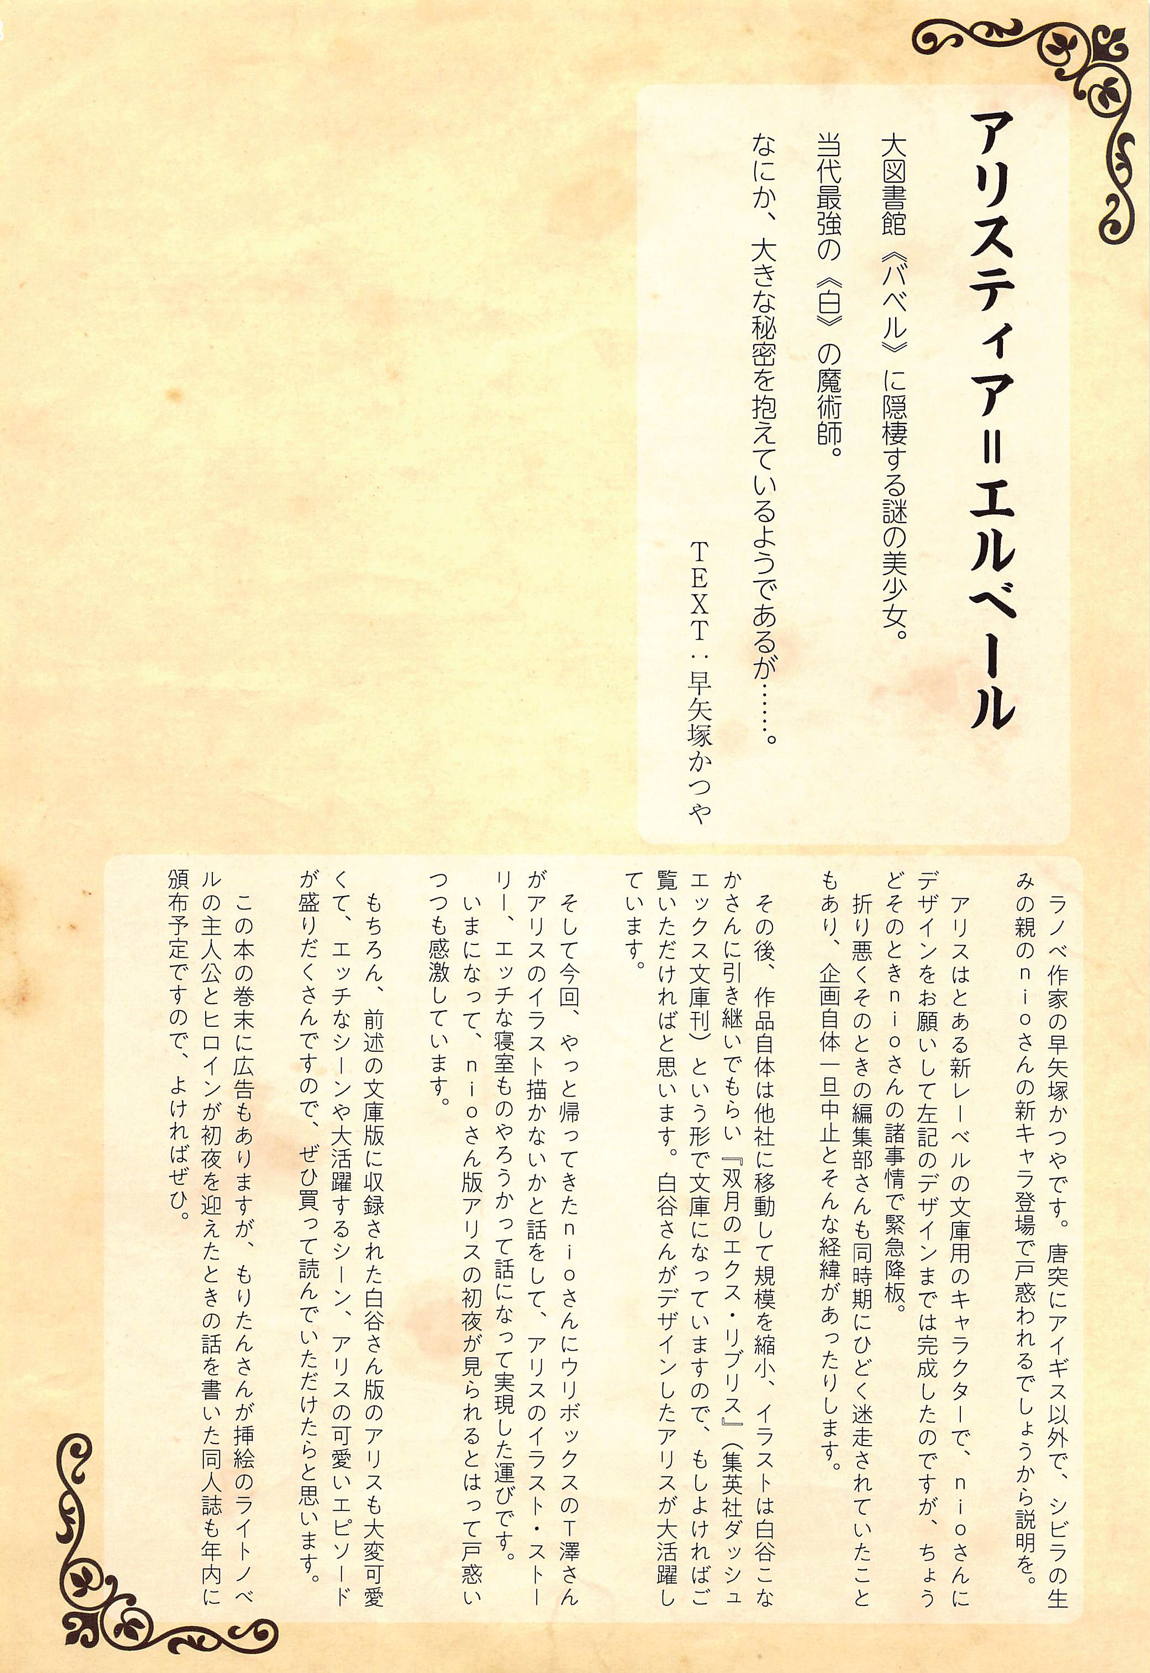 アリスティア＝エルベール
大図書館《バベル》に隠棲する謎の美少女。
当代最強の《白》の魔術師。
なにか、大きな秘密を抱えているようであるが……。
ＴＥＸＴ：早矢塚かつや
ラノベ作家の早矢塚かつやです。唐突にアイギス以外で、シビラの生
みの親のｎｉｏさんの新キャラ登場で戸惑われるでしょうから説明を。
アリスはとある新レーベルの文庫用のキャラクターで、ｎｉｏさんに
デザインをお願いして左記のデザインまでは完成したのですが、ちょう
どそのときｎｉｏさんの諸事情で緊急降板。
折り悪くそのときの編集部さんも同時期にひどく迷走されていたこと
もあり、企画自体一旦中止とそんな経緯があったりします。
その後、作品自体は他社に移動して規模を縮小、イラストは白谷こな
かさんに引き継いでもらい『双月のエクス・リブリス』（集英社ダッシュ
エックス文庫刊）という形で文庫になっていますので、もしよければご
覧いただければと思います。白谷さんがデザインしたアリスが大活躍し
ています。
そして今回、やっと帰ってきたｎｉｏさんにウリボックスのＴ澤さん
がアリスのイラスト描かないかと話をして、アリスのイラスト・ストー
リー、エッチな寝室ものやろうかって話になって実現した運びです。
いまになって、ｎｉｏさん版アリスの初夜が見られるとはって戸惑い
つつも感激しています。
もちろん、前述の文庫版に収録された白谷さん版のアリスも大変可愛
くて、エッチなシーンや大活躍するシーン、アリスの可愛いエピソード
が盛りだくさんですので、ぜひ買って読んでいただけたらと思います。
この本の巻末に広告もありますが、もりたんさんが挿絵のライトノベ
ルの主人公とヒロインが初夜を迎えたときの話を書いた同人誌も年内に
頒布予定ですので、よければぜひ。